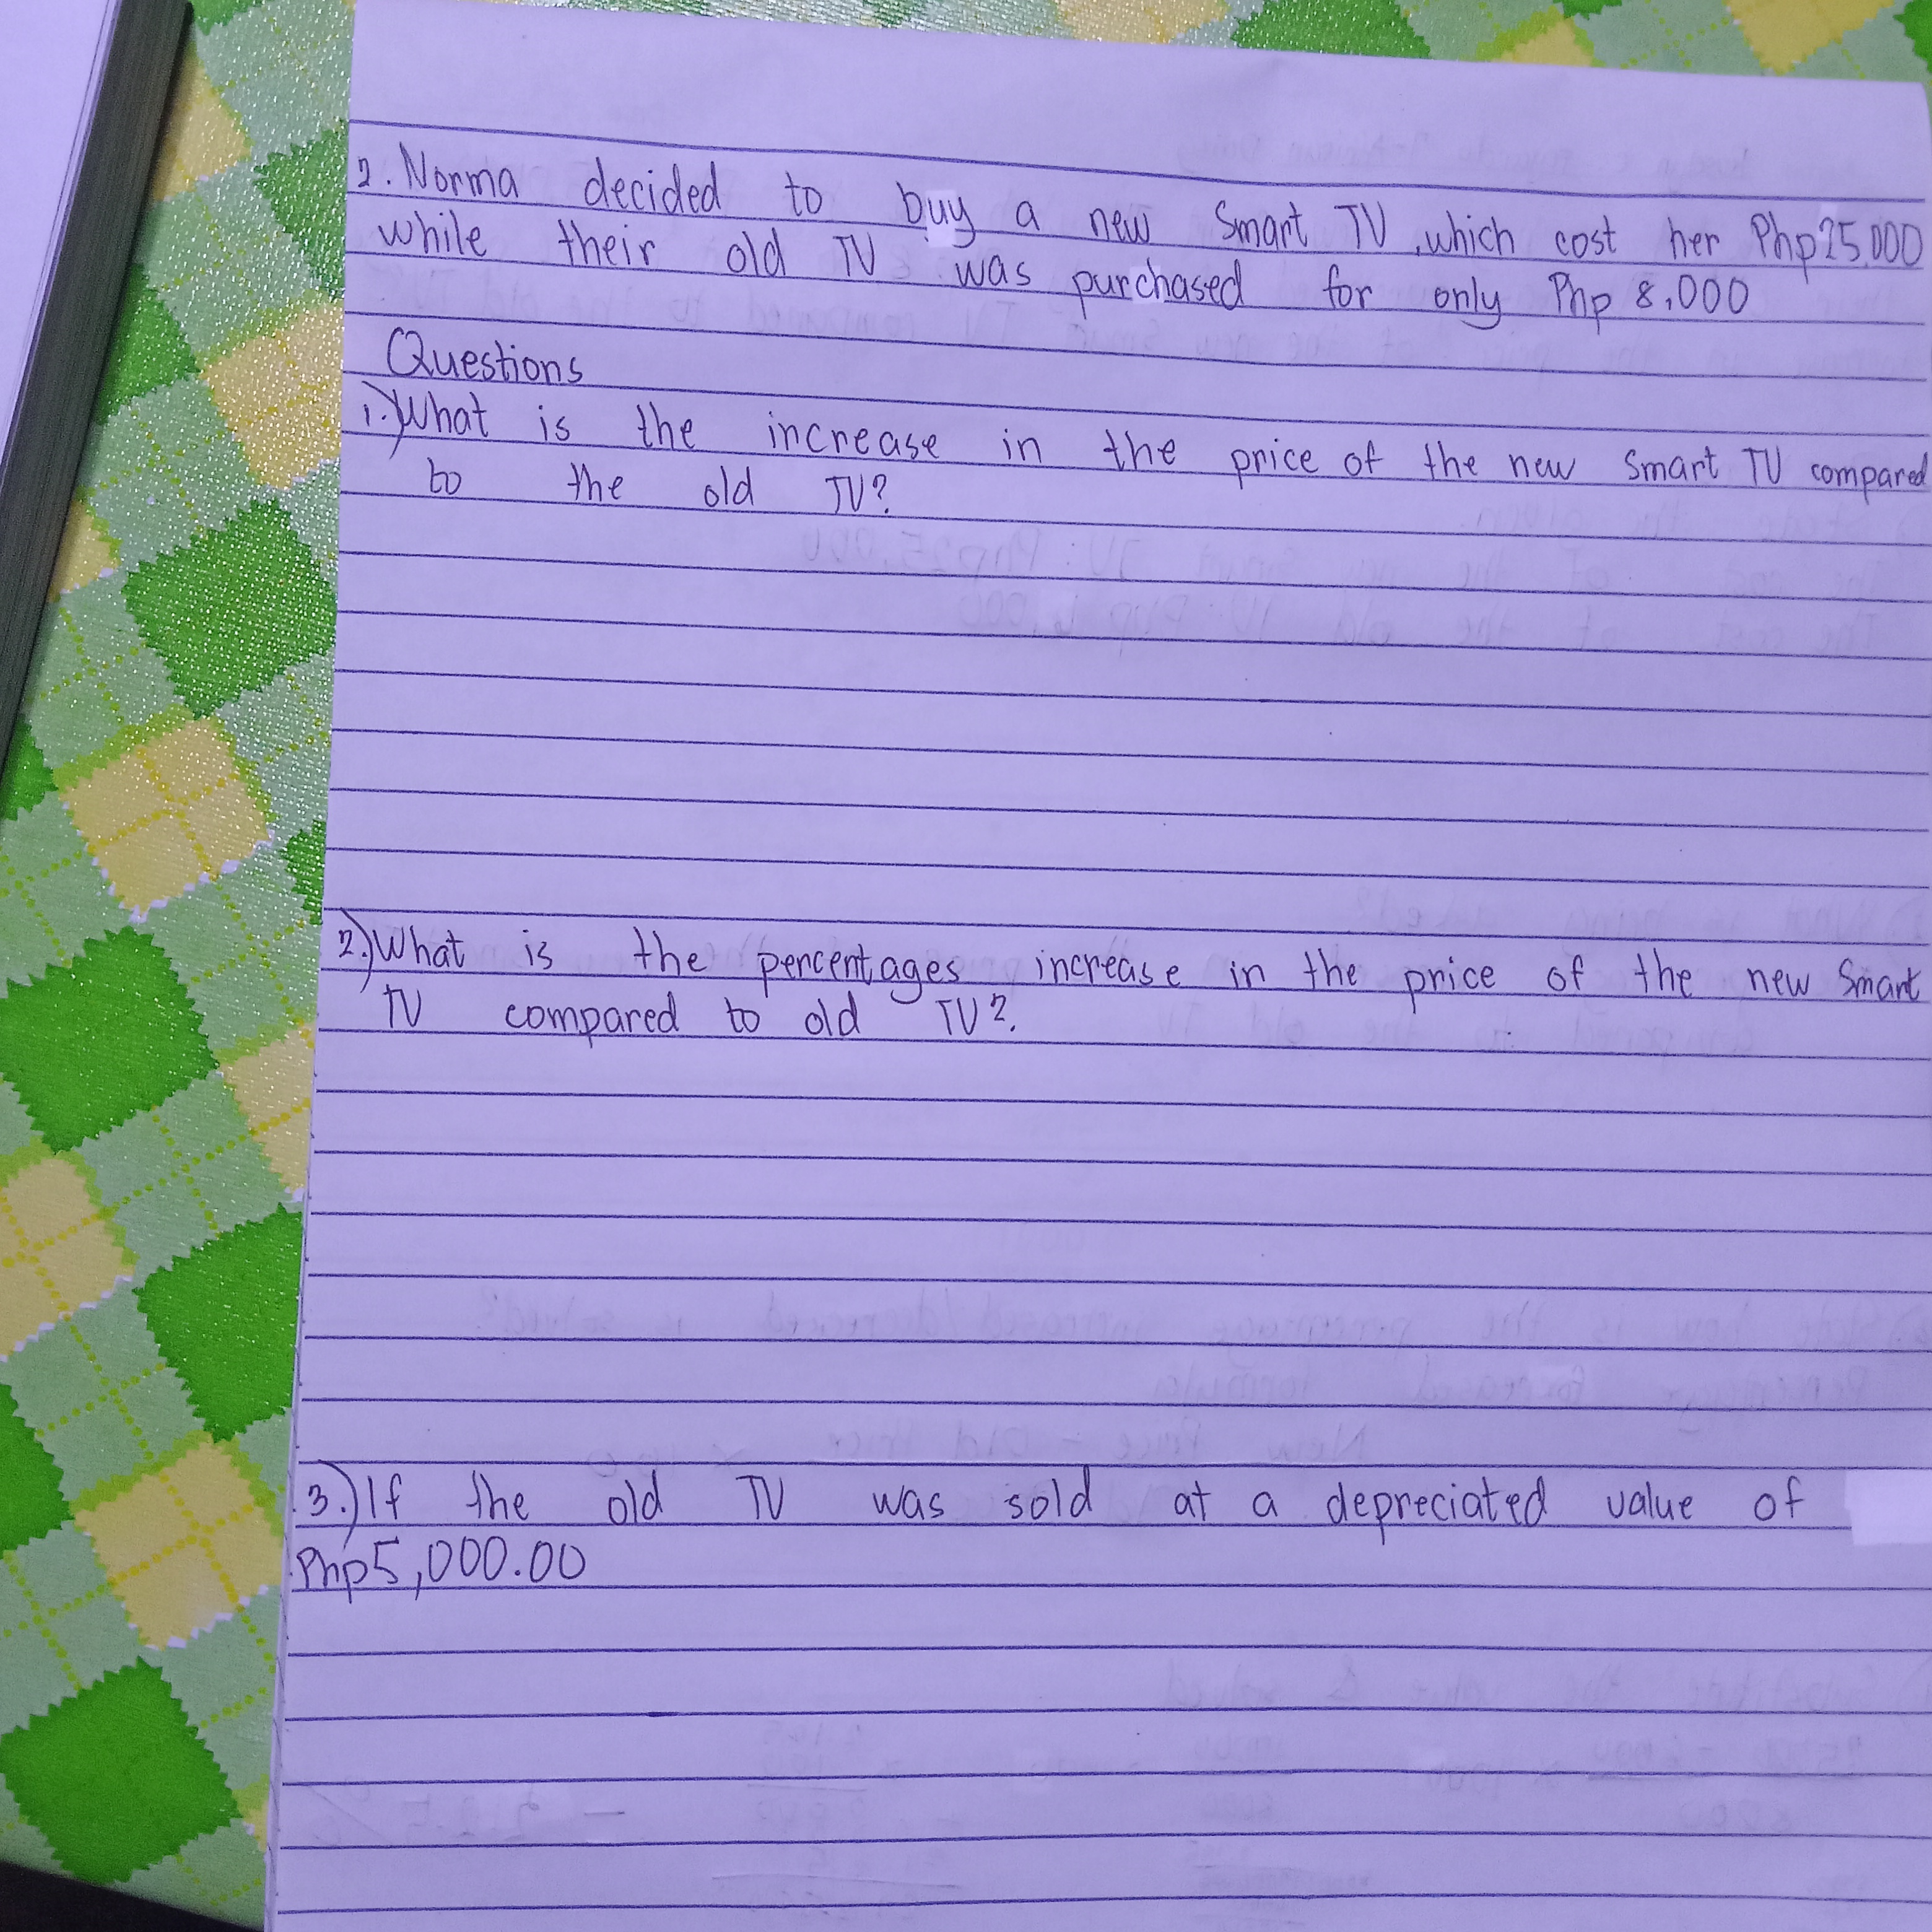 2. Norma decided to buy a new Smart TV, which cost her Php25,000
while their old TV was purchased for only Php 8,000
Questions
1.) What is the increase in the price of the new Smart TV compared
to the old TV?
2.) What is the percentages increase in the price of the new Smart
TV compared to old TV?.
3.) If the old TV was sold at a depreciated value of
Php5,000.00